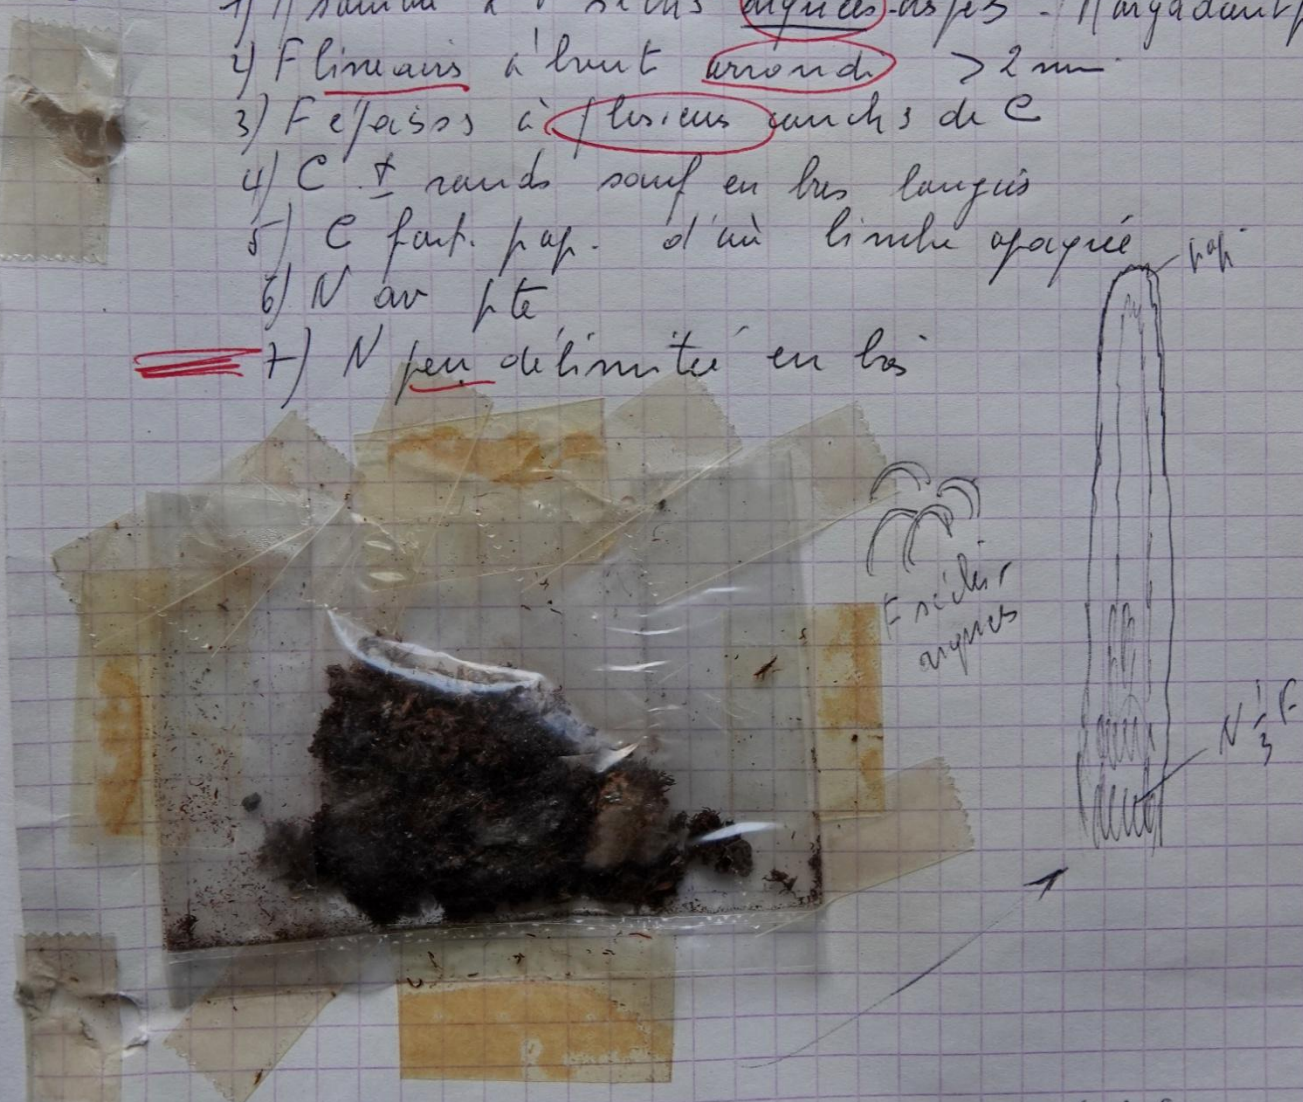 2) F linéairs à bout arrondi > 2 mm
3) F épaisos à plusieurs couchs de C
4) C ± ronds sauf en bas longuis
5) C fort. pap. d'où limbe opaque
pap
6) N av pte
7) N peu délimitée en bas
F séchées
arques
N 1/3 F